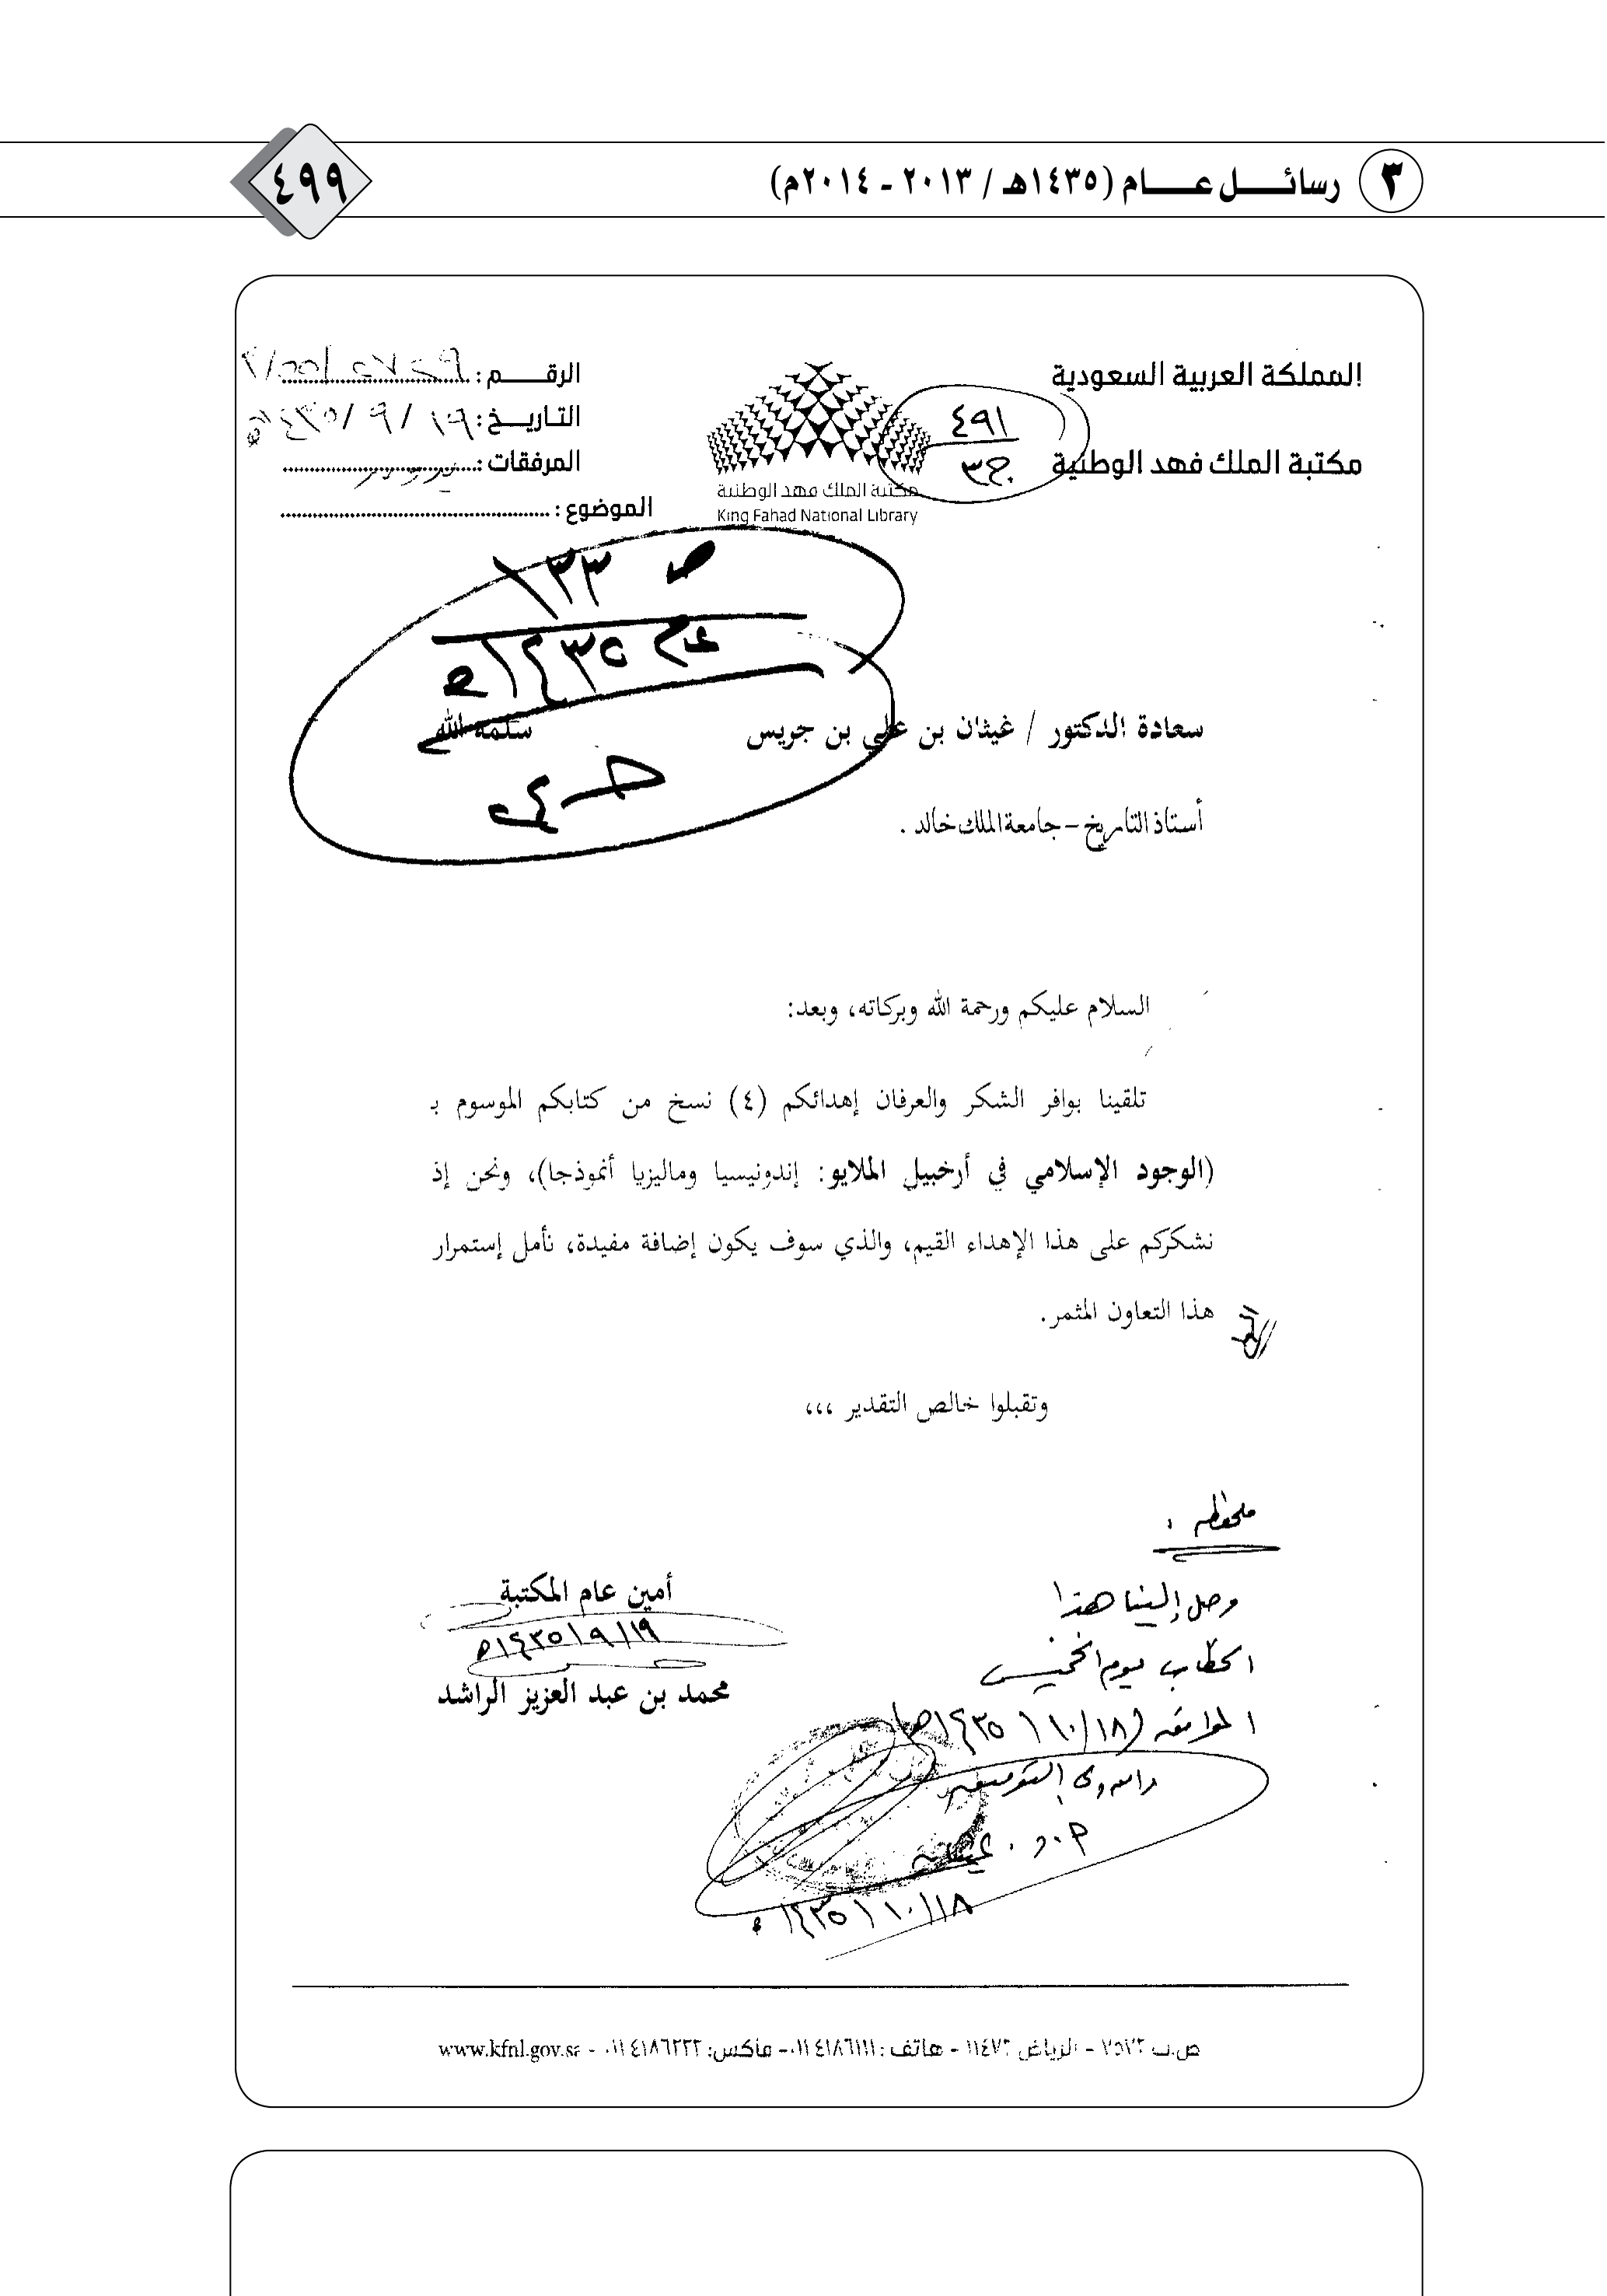 ٣ رسائــل عــام (١٤٣٥هـ / ٢٠١٣ - ٢٠١٤م)
٤٩٩
المملكة العربية السعودية
مكتبة الملك فهد الوطنية
٤٩١
ج٣
مكتبة الملك فهد الوطنية
King Fahad National Library
الرقــــم :
التاريــخ : ١٩ / ٩ / ١٤٣٥هـ
المرفقات :
الموضوع :
ص ١٣٣
عام ١٤٣٥هـ
سعادة الدكتور / غيثان بن علي بن جريس سلمه الله
أستاذ التاريخ – جامعة الملك خالد .
السلام عليكم ورحمة الله وبركاته، وبعد:
تلقينا بوافر الشكر والعرفان إهدائكم (٤) نسخ من كتابكم الموسوم بـ
(الوجود الإسلامي في أرخبيل الملايو: إندونيسيا وماليزيا أنموذجا)، ونحن إذ
نشكركم على هذا الإهداء القيم، والذي سوف يكون إضافة مفيدة، نأمل إستمرار
هذا التعاون المثمر.
وتقبلوا خالص التقدير ،،،
أمين عام المكتبة
١٤٣٥/٩/١٩هـ
محمد بن عبد العزيز الراشد
ملحظه :
وصل إلينا هذا
الخطاب يوم الخميس
الموافق (١٤٣٥/١٠/١٨هـ)
التوفيق
أ.د. غيثان
١٤٣٥/١٠/١٨هـ
ص.ب ٧٥٧٢ - الرياض ١١٤٧٢ - هاتف : ٠١١٤١٨٦١١١ - فاكس: ٠١١٤١٨٦٢٢٢ - www.kfnl.gov.sa